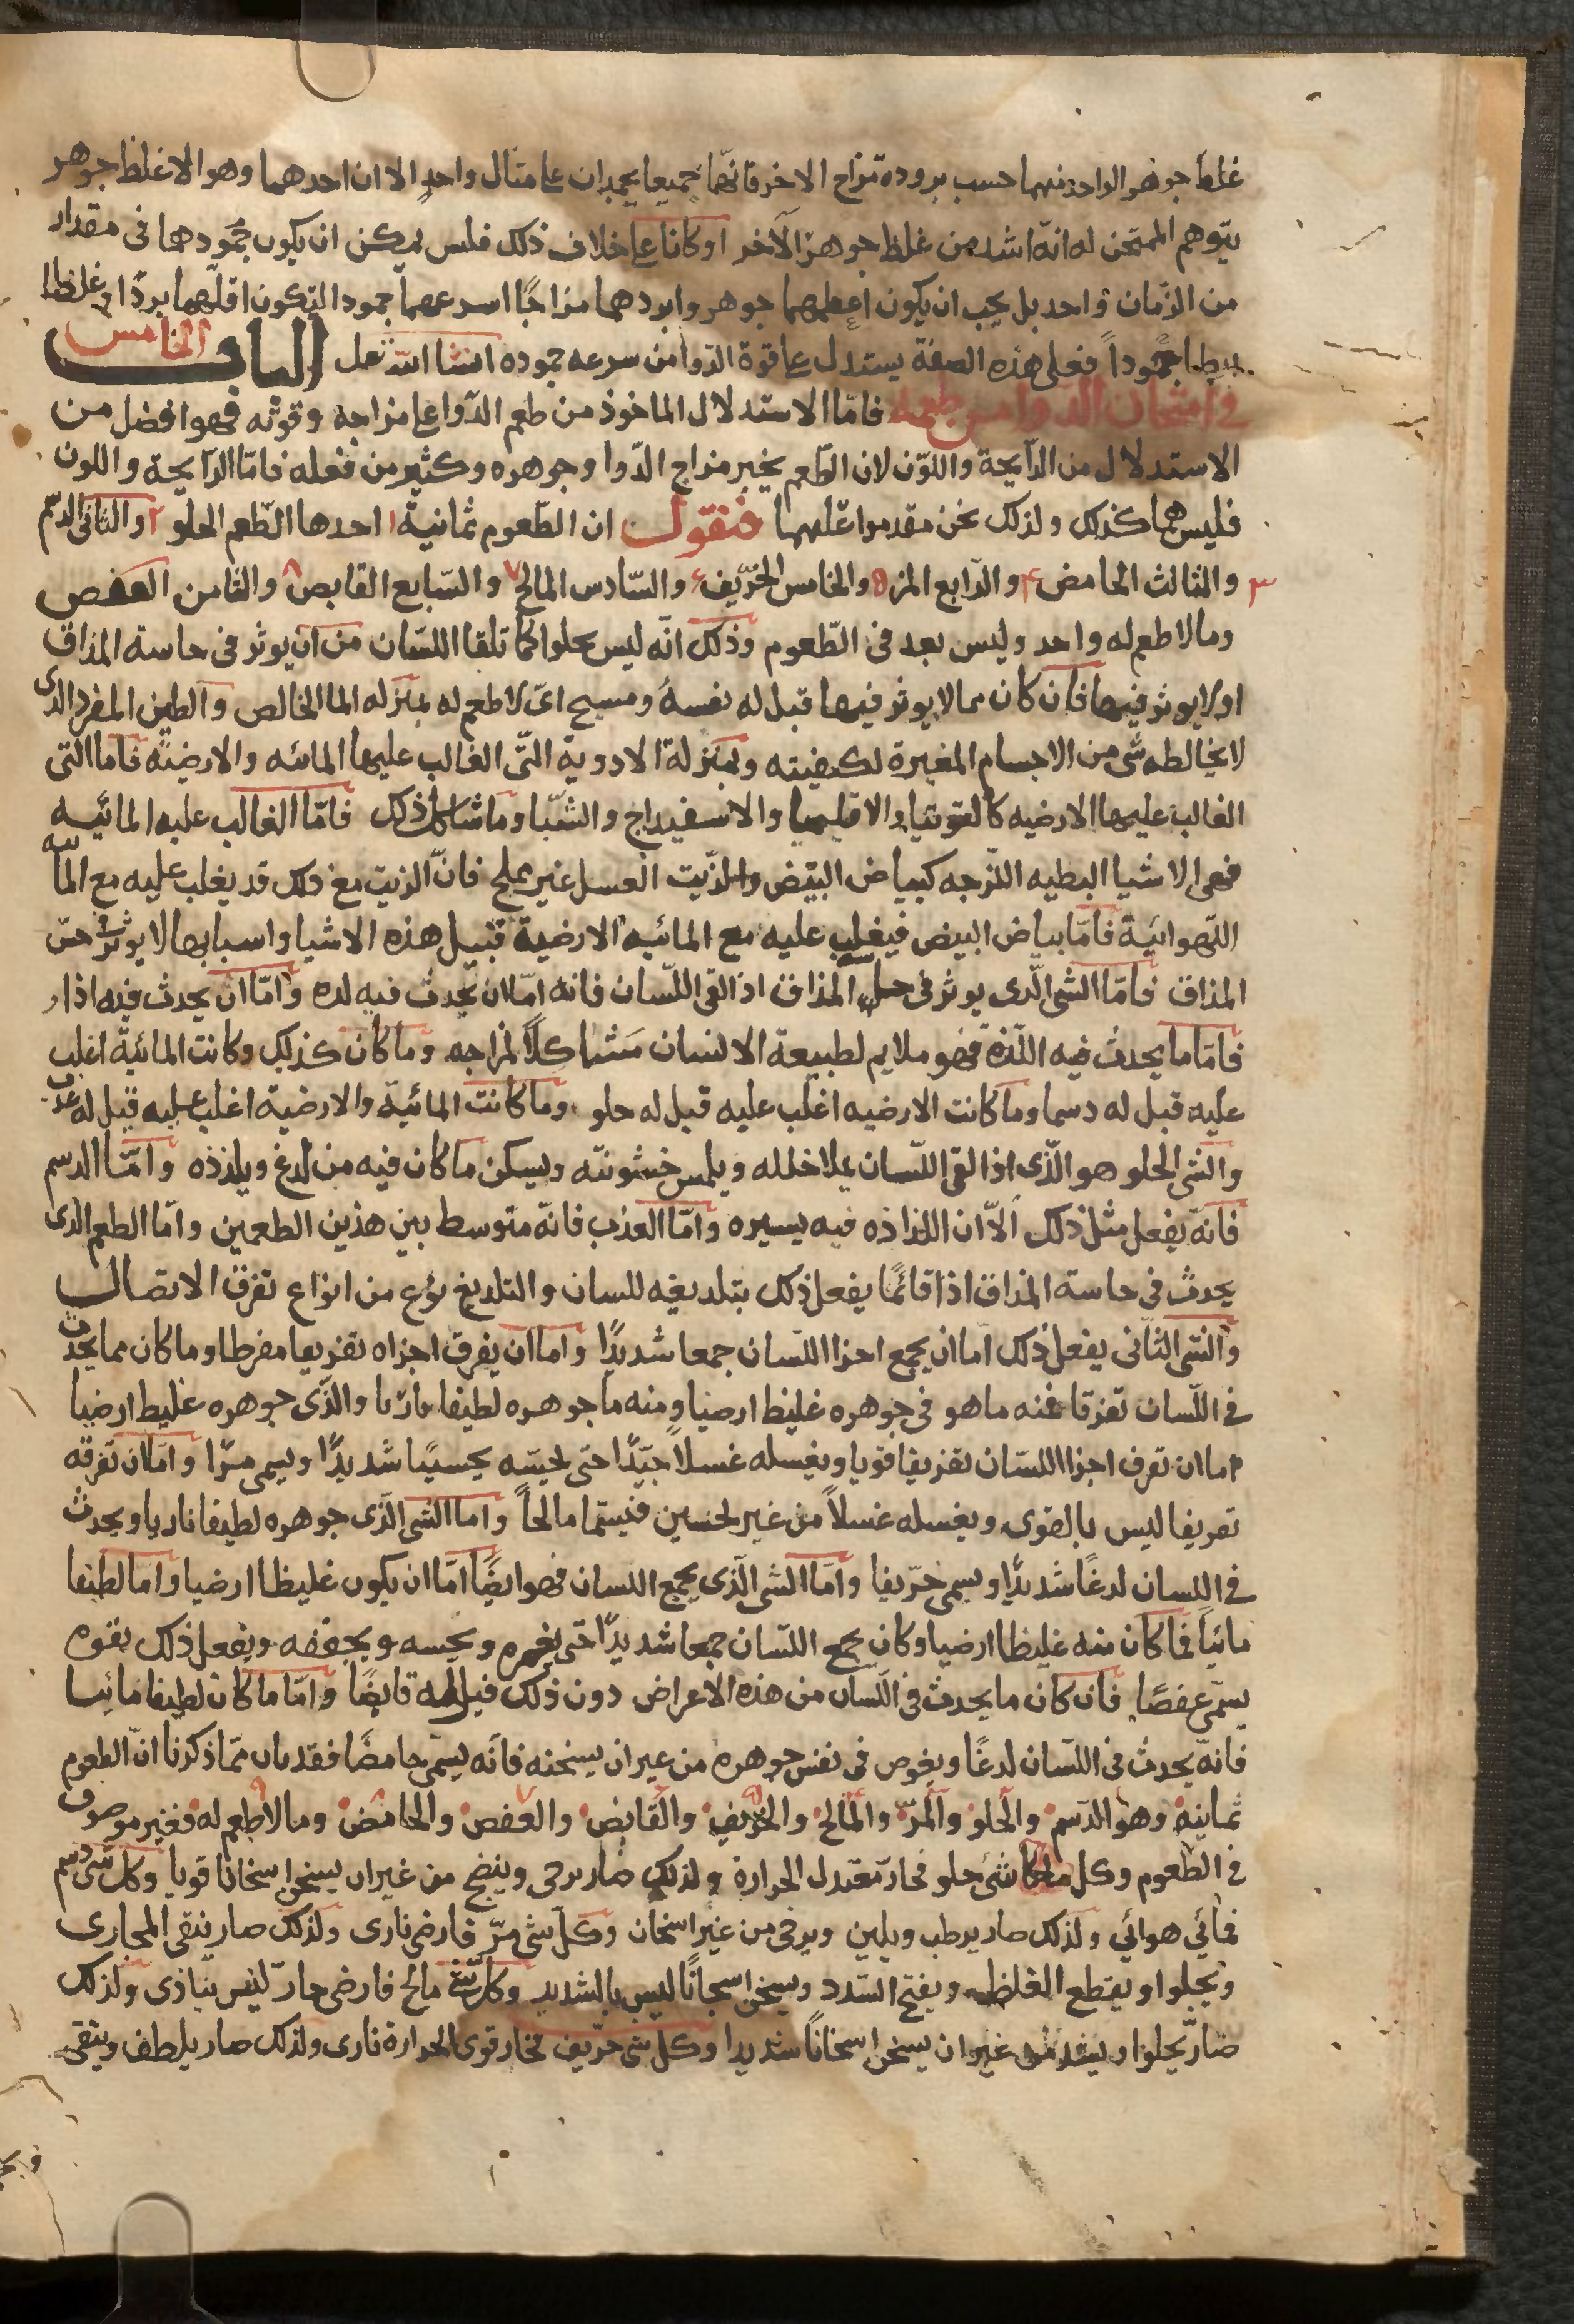 غلظ جوهر الواحد منهما حسب بروده مزاج الاخر فانّهما جميعا يجمدان على مثال واحدٍ الا ان احدهما وهو الاغلظ جوهر
يتوهم الممتحن له انّه اشد من غلظ جوهر الآخر او كانا على خلاف ذلك فلس يمكن ان يكون جمودها فى مقدار
من الزّمان واحد بل يجب ان يكون اعظمهما جوهر وابردهما مزاجًا اسرعهما جمودا لتكون اقلّهما بردًا وغلظا
ابطا جمُوداً فعلى هذه الصفة يستدل على قوة الدّوا من سرعه جموده انشا اللّه تعل الباب الخامس
فى امتحان الدوا من طعمه فامّا الاستدلال الماخوذ من طعم الدّوا على مزاجه وقوته فهو افضل من
الاستدلال من الرّايحة واللوّن لان الطّعم يخبر مزاج الدّوا وجوهره وكثير من فعله فامّا الرّايحة واللون
فليس هما كذلك ولذلك نحن مقدموا عليهما فنقول ان الطّعوم ثمانية ١ احدها الطّعم الحلو ٢ والثانى الدّسم
٣ والثالث الحامض ٤ والرّابع المز ٥ والخامس الحرّيف ٦ والسّادس المالح ٧ والسّابع القابص ٨ والثامن العفص
وما لا طعم له واحد وليس بعد فى الطّعوم وذلك انّه ليس يحلوا كلما تلقا اللسّان من ان يوثر فى حاسة المذاق
او لا يوثر فيها فان كان مما لا يوثر فيها قيل له نفسهُ ومسيح اىّ لا طعم له بمنزله الما الخالص والطين المفرد الدى
لا يخالطه شى من الاجسام المغيرة لكيفيته وبمنزلة الادوية التّى الغالب عليها المائه والارضيّه فاما التى
الغالب عليها الارضيه كالتوتيا والاقليميا والاسفيداج والشّبا وما شاكل ذلك فامّا الغالب عليه المائيه
فهى الاشيا البطيه اللزجه كبياض البيض والزّيت العسل غير مملح فانّ الزيت مع ذلك قد يغلب عليه مع المائيه
الّهوائيّة فامّا بياض البيض فيغلب عليه مع المائيه الارضية فنيل هذه الاشيا واسبابها لا يوثر فى حسّ
المذاق فامّا الشى الّدى يوثر فى حس المذاق اذا لقى اللّسان فانه امّا ان يحدث فيه لده وامّا ان يحدث فيه اذا
فامّا ما يحدث فيه اللّذة فهو ملايم لطبيعة الانسان مشاكلاً لمزاجه وما كان كذلك وكانت المائيّة اغلب
عليه قيل له دسما وما كانت الارضيه اغلب عليه قيل له حلو وما كانت المائيّة والارضية اغلب عليه قيل له عذب
والشى الحلو هو الّذى اذا لقى اللّسان يملا خلله ويملس خشونته ويسكن ما كان فيه من لدغ ويلذذه وامّا الدسم
فانّه يفعل مثل ذلك الاّ ان اللذاذه فيه يسيره وامّا العذب فانّه متوسط بين هذين الطعمين وامّا الطعم الدى
يحدث فى حاسة المذاق اذا فانّما يفعل ذلك بتلديغه للسان والتلديغ نوع من انواع تفرق الاتصال
والشى الثّانى يفعل ذلك امّا ان يجمع اجزا اللسّان جمعا شديدًا واما ان يفرق اجزاه تفريعا مفرطا وما كان مما يحدث
فى اللّسان تفرقا فمنه ما هو فى جوهره غليظ ارضيا ومنه ما جوهره لطيفا ناريّا والّذى جوهره غليط ارضيا
اما ان تفرق اجزا اللسّان تفريقا قويا ويغسله غسلاً جيّدًا حتى يحبسّه يحسيًا شديدًا ويسمى مرّا وامّا ان تفرقه
تفريقا ليس بالقوى ويغسله غسلاً من غير لحسين فيسمّا مالحاً واما الشى الّذى جوهره لطيفا ناريا ويحدث
فى اللسان لدغًا شديدًا ويسمى حرّيفا وامّا الشى الّذى يجمع اللسان فهو ايضًا امّا ان يكون غليظا ارضيا وامّا لطيفا
مائيا فما كان منه غليظا ارضيا وكان يجمع اللسّان جمعا شديدًا حتى يغمره ويحسه ويجففه ويفعل ذلك بقوه
يسمّى عفصًا فان كان ما يحدث فى اللّسان من هذه الاعراض دون ذلك فيل له قابضًا وامّا ما كان لطيفا مائيا
فانهّ يحدث فى اللّسان لدغًا ويغوص فى نفس جوهره من عير ان يسخنه فانّه يسمّى حامضًا فقد بان ممّا ذكرنا انّ الطعوم
ثمانيه وهو الدّسم والحلو والمرّ والمالح والحرّيف والقابض والعفص والحامض وما لا طعم له فغير موصوف
فى الطعوم وكل ما كا شئ حلو فحار معتدل الحرارة ولذلك صار يرخى وينضج من غير ان يسخن اسخانا قويا وكل شى دسم
فمائي هوائي ولذلك صار يرطب ويلين ويرخى من غير اسخان وكل شى مرّ فارضى نارى ولذلك صار ينقى المجارى
ويجلوا ويقطع الغلظ ويفتح السّدد ويسخن اسخانًا ليس بالشديد وكل شى مالح فارضى حارّ ليس بناذى ولذلك
صار يجلوا ويشد من غير ان يسخن اسخانًا شديدا وكل شى حرّيف فحار قوى الحرارة نارى ولذلك صار يلطف وينقى